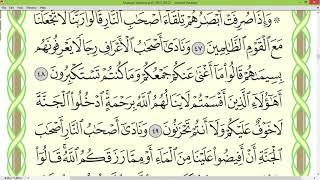 ۞ وَإِذَا صُرِفَتْ أَبْصَٰرُهُمْ تِلْقَآءَ أَصْحَٰبِ ٱلنَّارِ قَالُوا۟ رَبَّنَا لَا تَجْعَلْنَا
مَعَ ٱلْقَوْمِ ٱلظَّٰلِمِينَ ٤٧ وَنَادَىٰٓ أَصْحَٰبُ ٱلْأَعْرَافِ رِجَالًا يَعْرِفُونَهُم
بِسِيمَىٰهُمْ قَالُوا۟ مَآ أَغْنَىٰ عَنكُمْ جَمْعُكُمْ وَمَا كُنتُمْ تَسْتَكْبِرُونَ ٤٨
أَهَٰٓؤُلَآءِ ٱلَّذِينَ أَقْسَمْتُمْ لَا يَنَالُهُمُ ٱللَّهُ بِرَحْمَةٍ ٱدْخُلُوا۟ ٱلْجَنَّةَ
لَا خَوْفٌ عَلَيْكُمْ وَلَآ أَنتُمْ تَحْزَنُونَ ٤٩ وَنَادَىٰٓ أَصْحَٰبُ ٱلنَّارِ أَصْحَٰبَ
ٱلْجَنَّةِ أَنْ أَفِيضُوا۟ عَلَيْنَا مِنَ ٱلْمَآءِ أَوْ مِمَّا رَزَقَكُمُ ٱللَّهُ قَالُوٓا۟